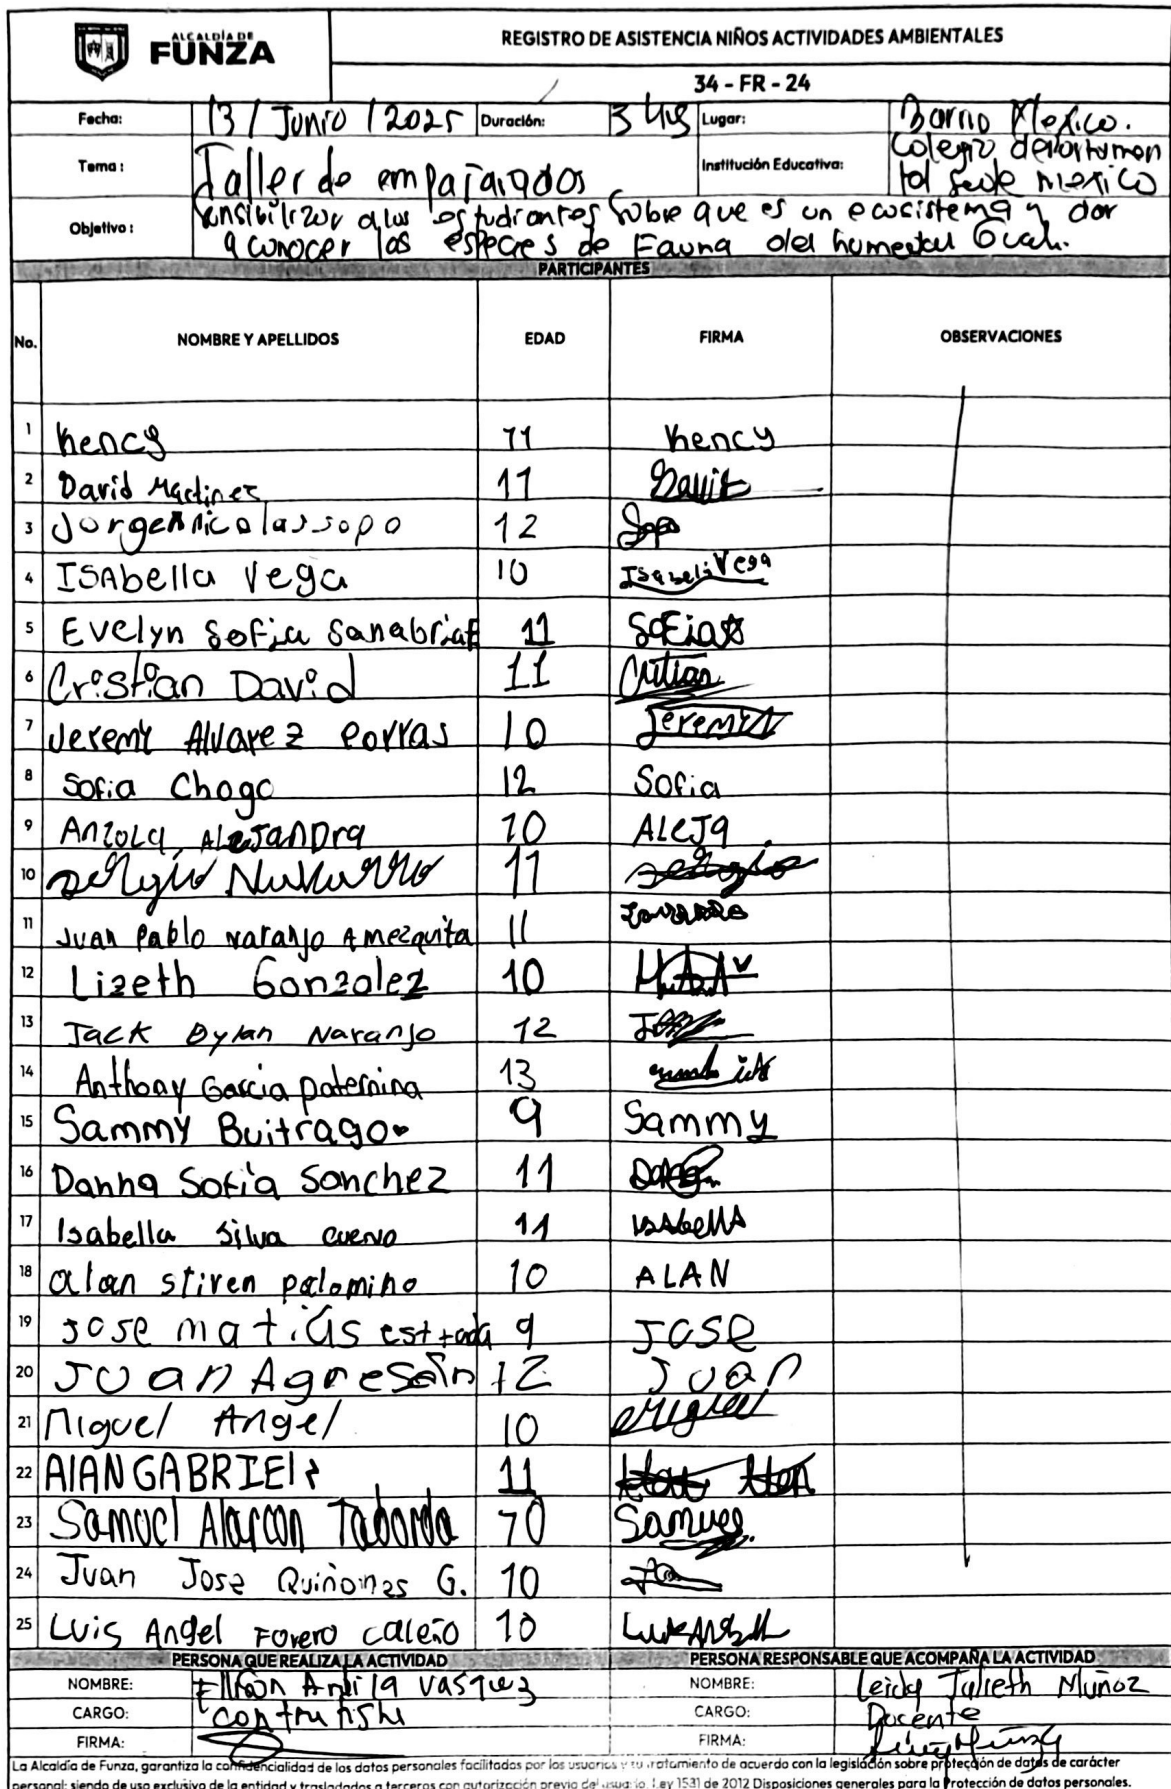 ALCALDÍA DE
FUNZA
REGISTRO DE ASISTENCIA NIÑOS ACTIVIDADES AMBIENTALES
34 - FR - 24
Fecha: 13 / Junio / 2025 Duración: 3 Hrs Lugar: Barrio Mexico.
Tema: Taller de empajaiados Institución Educativa: Colegio departamen
tal sede mexico
Objetivo: Sensibilizar a los estudiantes sobre que es un ecosistema y dar
a conocer las especies de Fauna del humedal Guali.
PARTICIPANTES
No. NOMBRE Y APELLIDOS EDAD FIRMA OBSERVACIONES
1 Kency 11 Kency
2 David Martinez 11 David
3 Jorge Nicolas sopo 12 Sopo
4 ISAbella Vega 10 Isabela Vega
5 Evelyn Sofia Sanabria 11 SoFia
6 Cristian David 11 Cristian
7 Jeremy Alvarez Porras 10 Jeremy
8 Sofia Chogo 12 Sofia
9 Anzola, ALeJanDra 10 ALeJa
10 Sergio Navarro 11 Sergio
11 Juan Pablo Naranjo Amezquita 11
12 Lizeth Gonzalez 10
13 Jack Dylan Naranjo 12
14 Anthony Garcia paternina 13
15 Sammy Buitrago 9 Sammy
16 Danna Sofia Sanchez 11
17 Isabella Silva cuervo 11 IsAbellA
18 alan stiven palomino 10 ALAN
19 Jose matias estrada 9 JOSE
20 JUan Agresein 12 Juan
21 Miguel Angel 10 Miguel
22 AlAN GABRIEl 11
23 Samuel Alarcon Taborda 10 Samuel
24 Juan Jose Quiñones G. 10
25 Luis Angel Forero caleño 10 Luis Angel
PERSONA QUE REALIZA LA ACTIVIDAD PERSONA RESPONSABLE QUE ACOMPAÑA LA ACTIVIDAD
NOMBRE: Vasquez NOMBRE: Leidy Julieth Muñoz
CARGO: Contratista CARGO: Docente
FIRMA: FIRMA: Leidy Muñoz
La Alcaldía de Funza, garantiza la confidencialidad de los datos personales facilitados por los usuarios y su tratamiento de acuerdo con la legislación sobre protección de datos de carácter
personal; siendo de uso exclusivo de la entidad y trasladados a terceros con autorización previa del usuario. Ley 1531 de 2012 Disposiciones generales para la Protección de datos personales.